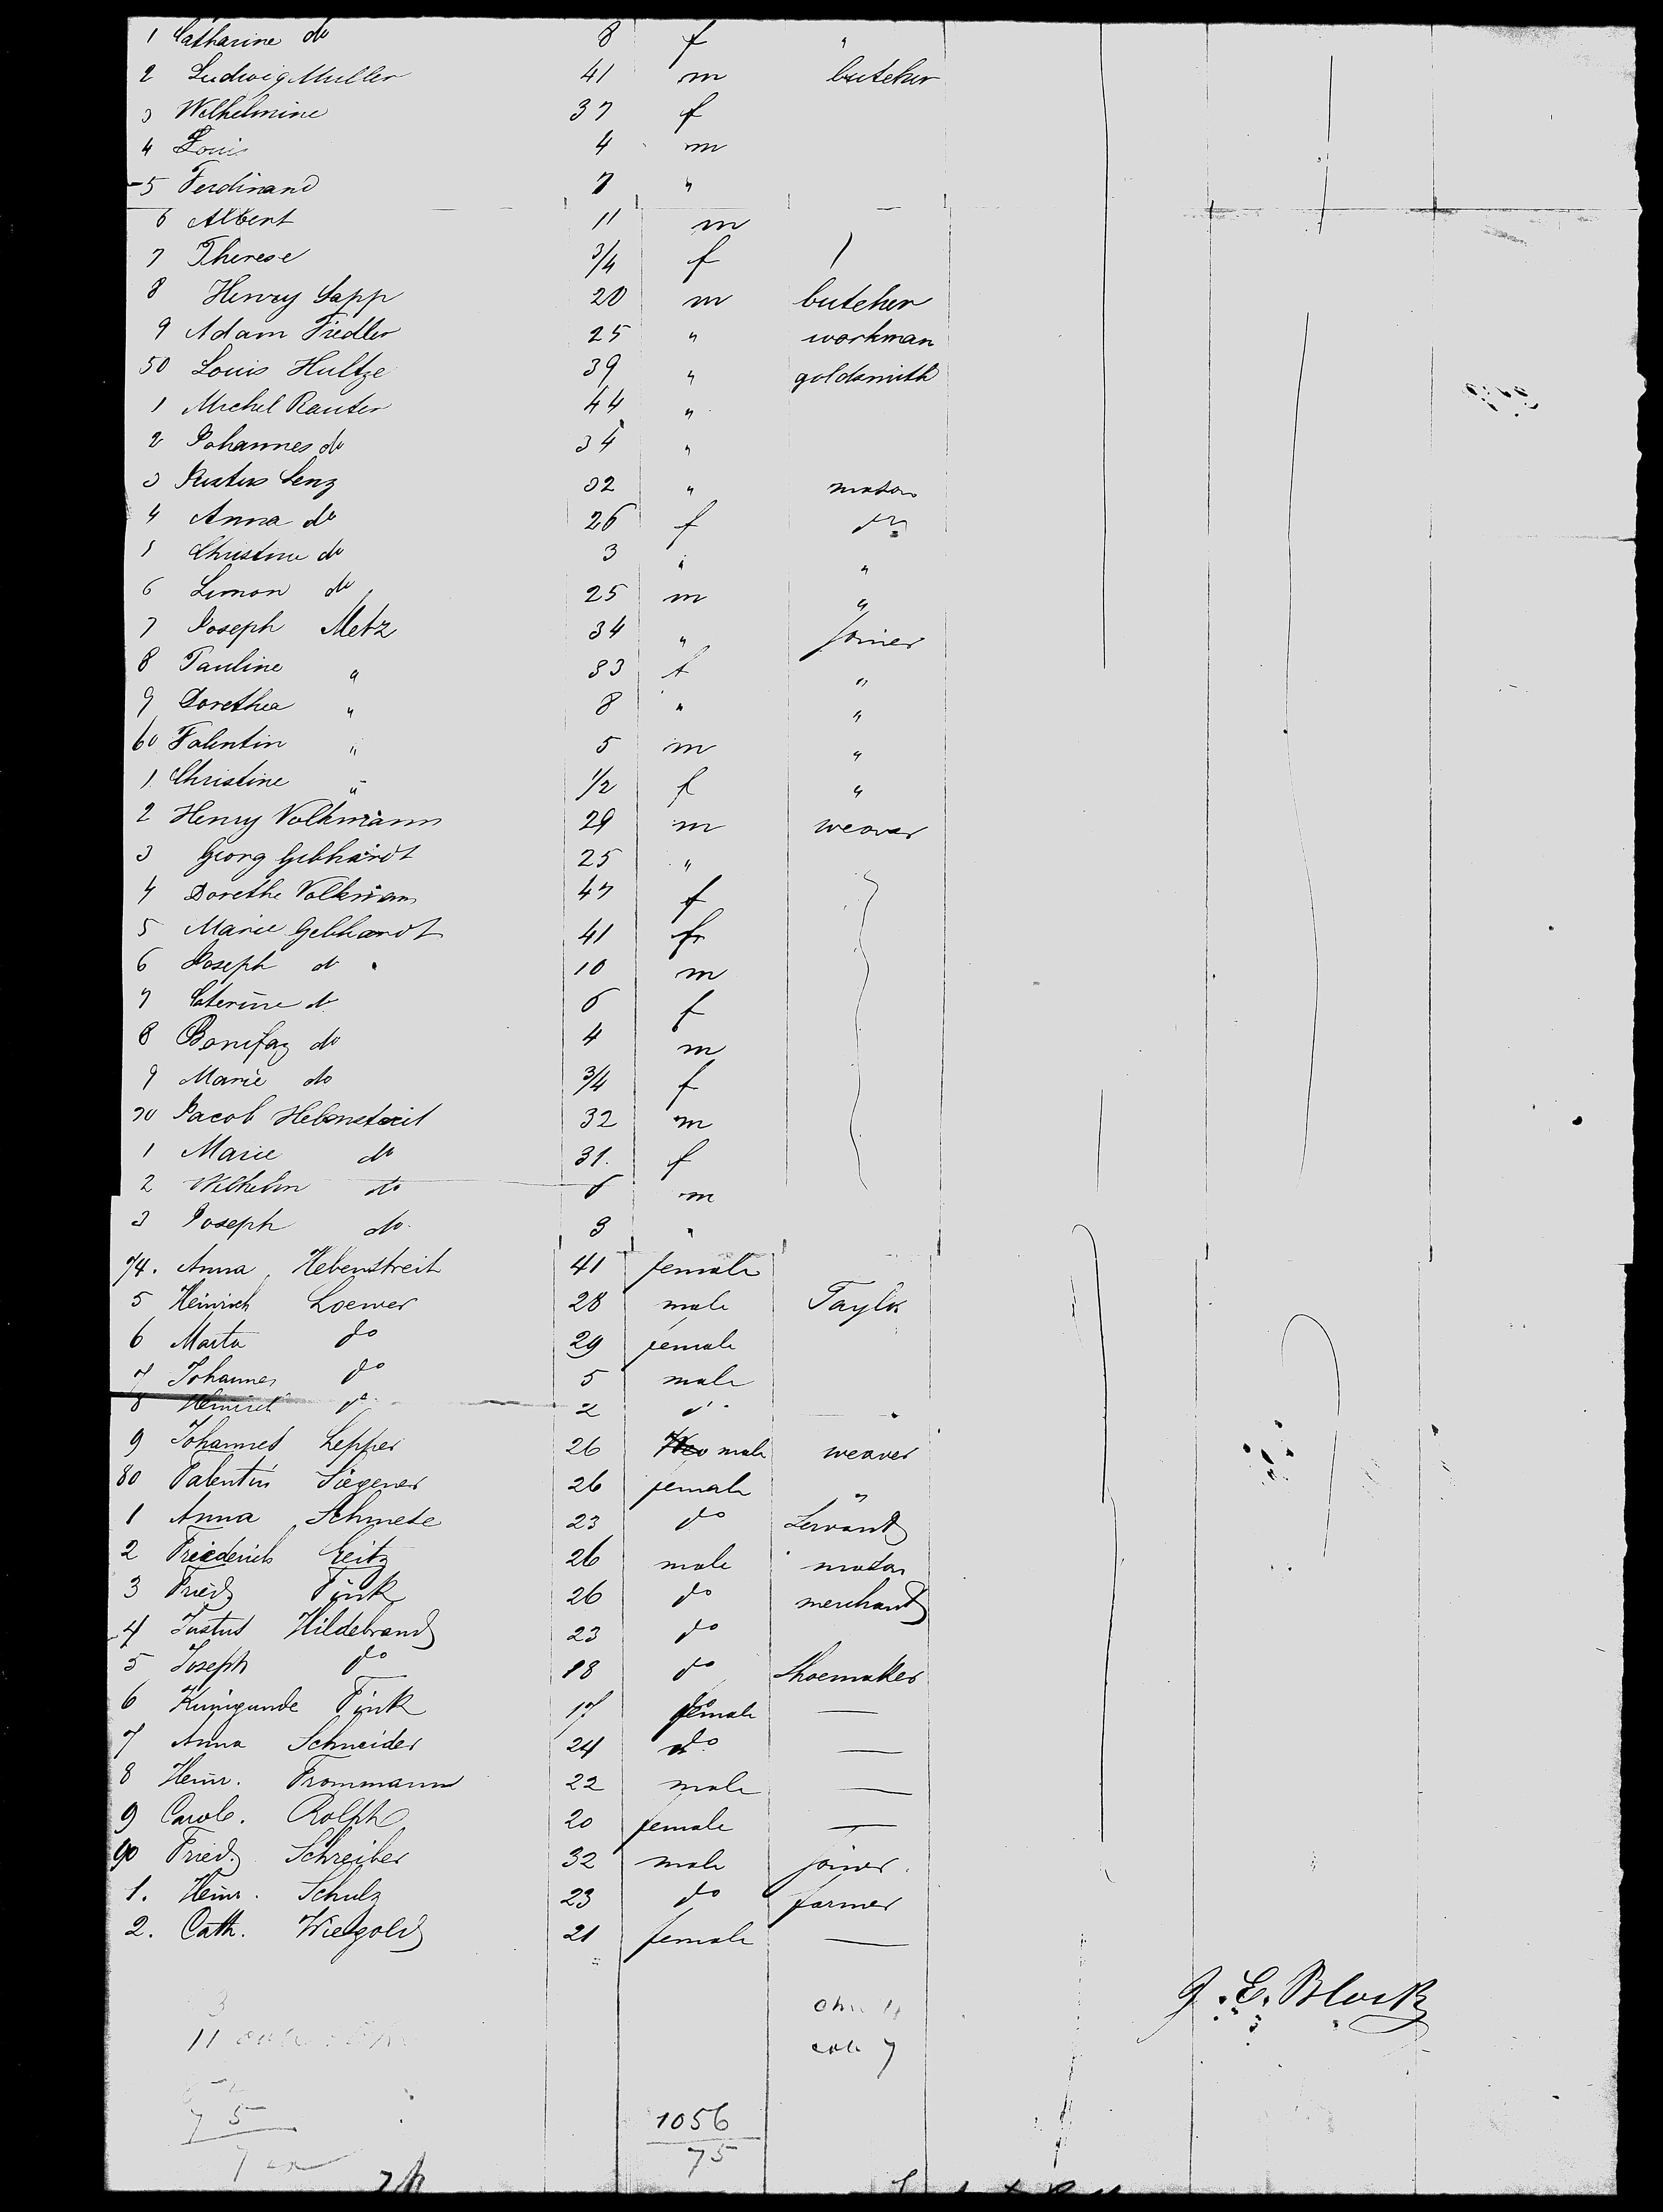 1 Catharine do 8 f "
2 Ludwig Muller 41 m butcher
3 Wilhelmine 37 f
4 Louis 4 m
5 Ferdinand 7 "
6 Albert 11 m
7 Therese 3/4 f
8 Henry Sapp 20 m butcher
9 Adam Fiedler 25 " workman
50 Louis Hultze 39 " goldsmith
1 Michel Rauter 44 "
2 Johannes do 34 "
3 Justus Lenz 32 " mason
4 Anna do 26 f do
5 Christine do 3 " "
6 Simon do 25 m "
7 Joseph Metz 34 " Joiner
8 Pauline " 33 f "
9 Dorethea " 8 " "
60 Falentin " 5 m "
1 Christine " 1/2 f "
2 Henry Volkmann 29 m weaver
3 Georg Gebhardt 25 "
4 Dorethe Volkmann 47 f
5 Marie Gebhardt 41 f
6 Joseph do 10 m
7 Caterine do 6 f
8 Bonifaz do 4 m
9 Marie do 3/4 f
70 Jacob Hebenstreit 32 m
1 Marie do 31 f
2 Wilhelm do 6 m
3 Joseph do 3 "
74. Anna Hebenstreit 41 female
5 Heinrich Loewer 28 male Taylor
6 Marta do 29 female
7 Johannes do 5 male
8 Heinrich do 2 do
9 Johannes Lepper 26 male weaver
80 Valentin Siegener 26 female "
1 Anna Schmete 23 do Servant
2 Friederich Geitz 26 male mason
3 Fried Fink 26 do merchant
4 Justus Hildebrand 23 do
5 Joseph do 18 do Shoemaker
6 Kunigunde Fink 17 female —
7 Anna Schneider 24 do —
8 Heinr. Frommann 22 male —
9 Carole. Rolph 20 female —
90 Fried. Schreiber 32 male joiner
1. Heinr. Schulz 23 do farmer
2. Cath. Wiegold 21 female —
J. E. Block
11
7
75
1056
75